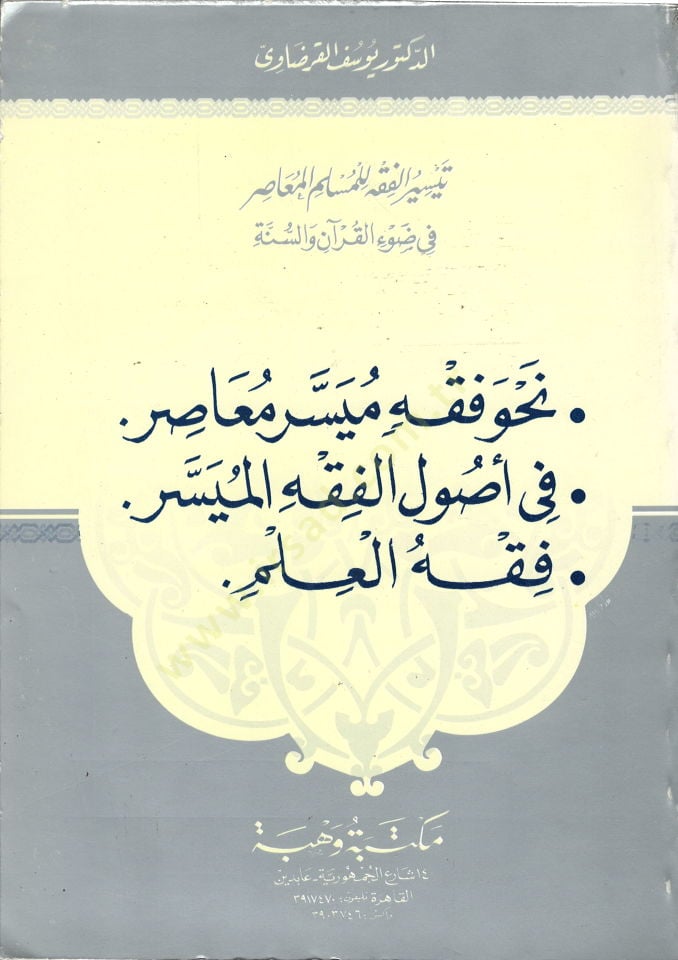 الدكتور يوسف القرضاوي
تَيسِيرُ الفِقهِ لِلمُسْلِمِ المُعَاصِرِ
فِي ضَوْءِ القُرآنِ وَالسُّنَّةِ
• نَحْوَ فِقْهٍ مُيَسَّرٍ مُعَاصِر.
• فِي أُصُولِ الفِقْهِ المُيَسَّرِ.
• فِقْهُ العِلْمِ.
مكتبة وهبة
١٤ شارع الجمهورية - عابدين
القاهرة تليفون: ٣٩١٧٤٧٠
فاكس: ٣٩٠٣٧٤٦